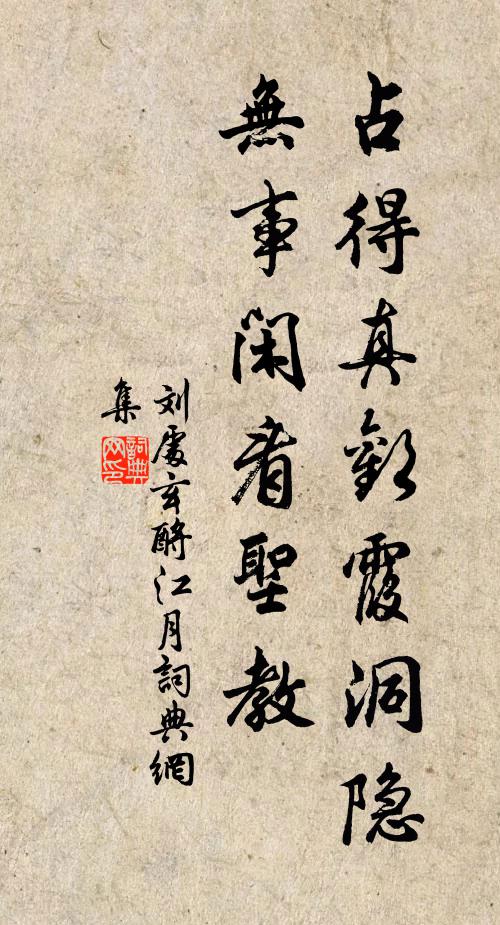 占得真歡霞洞隐
無事閑看聖教
刘處玄酹江月詞典網
集
詞典
网印